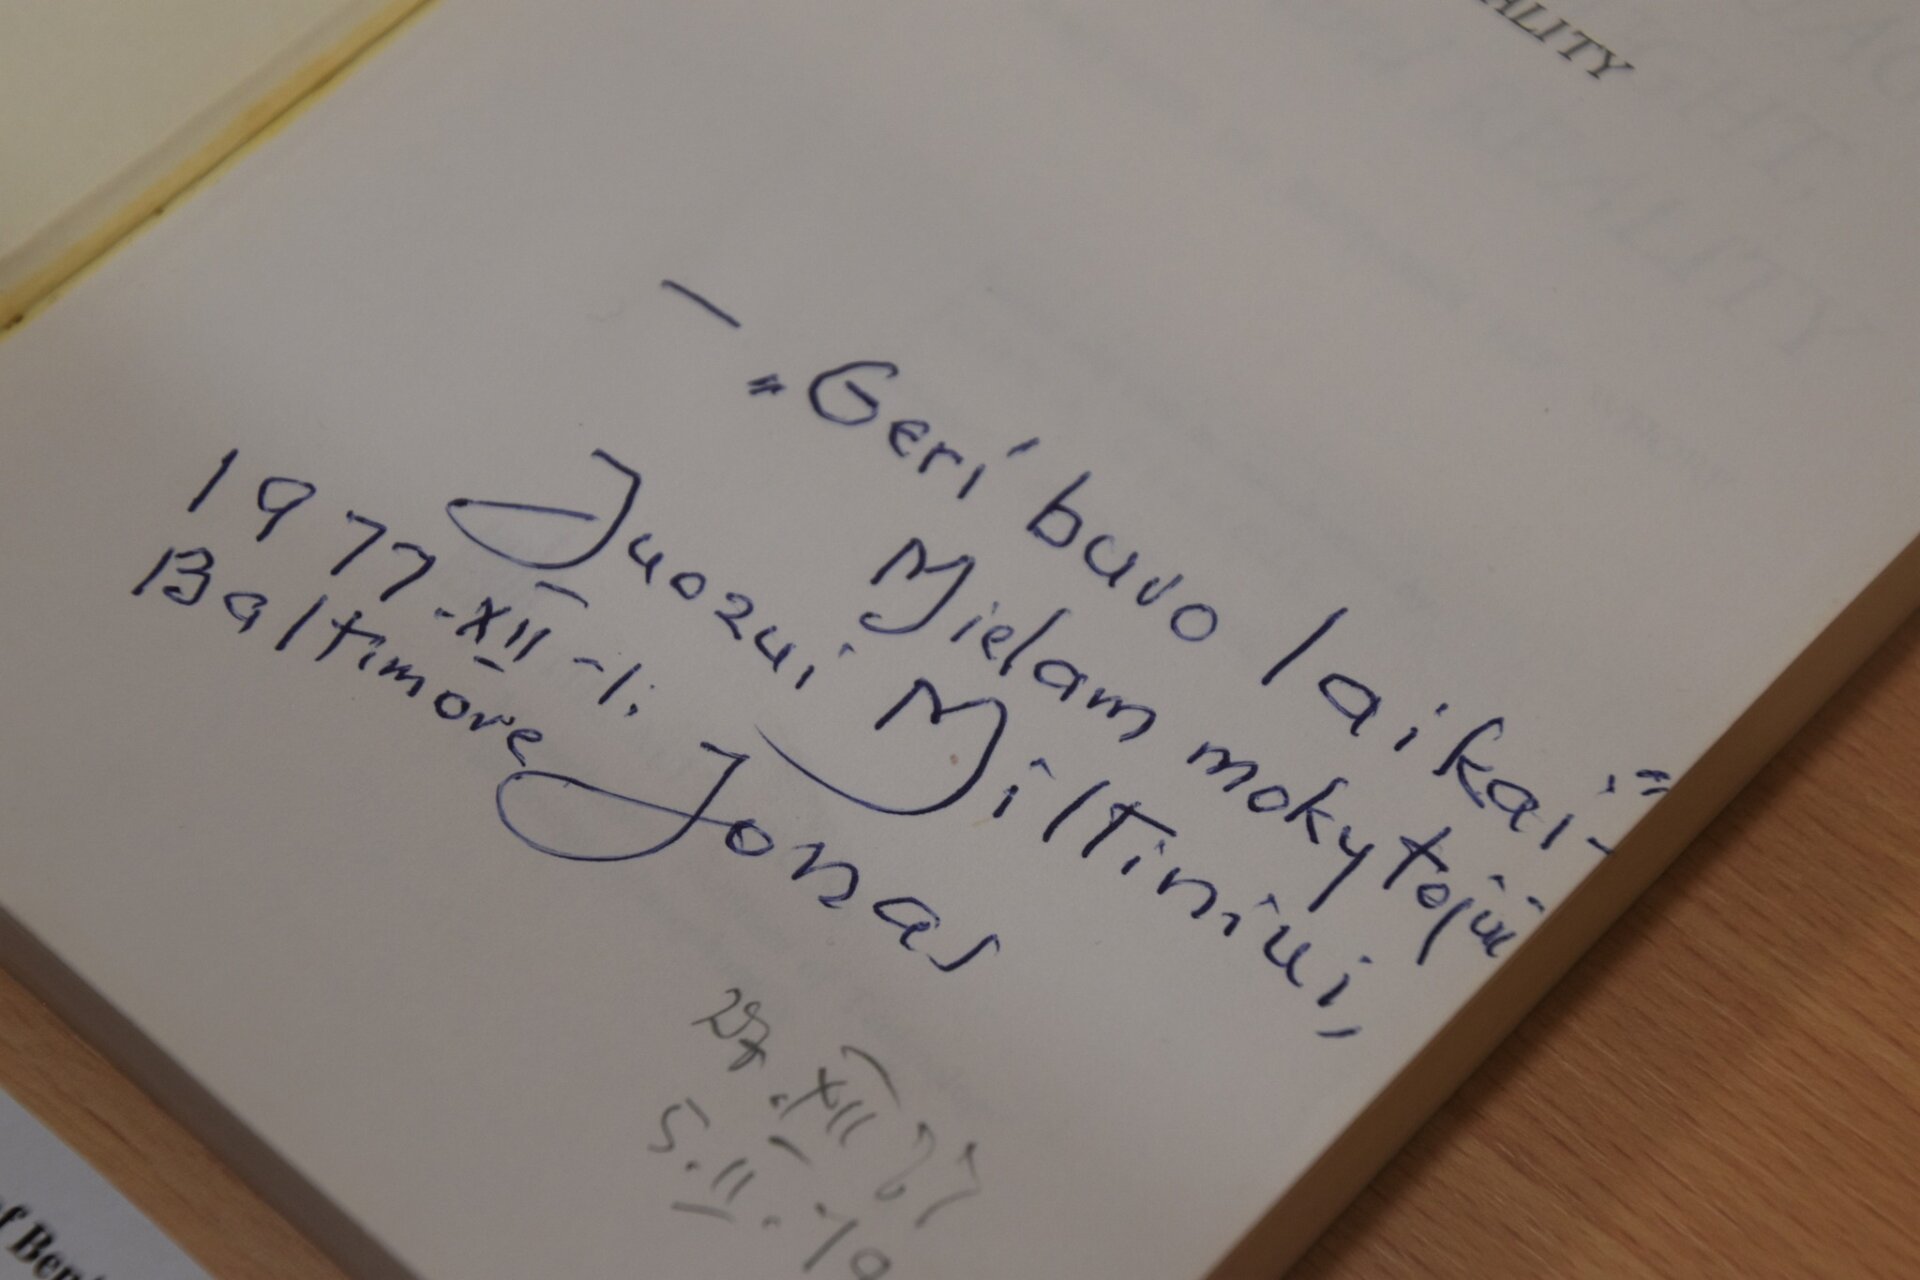 ALITY
– „Geri buvo laikai“ –
Mielam mokytojui
Juozui Miltiniui,
1977-XII-1.
Baltimore
Jonas
27.XII 77
5.II.79
of Ben